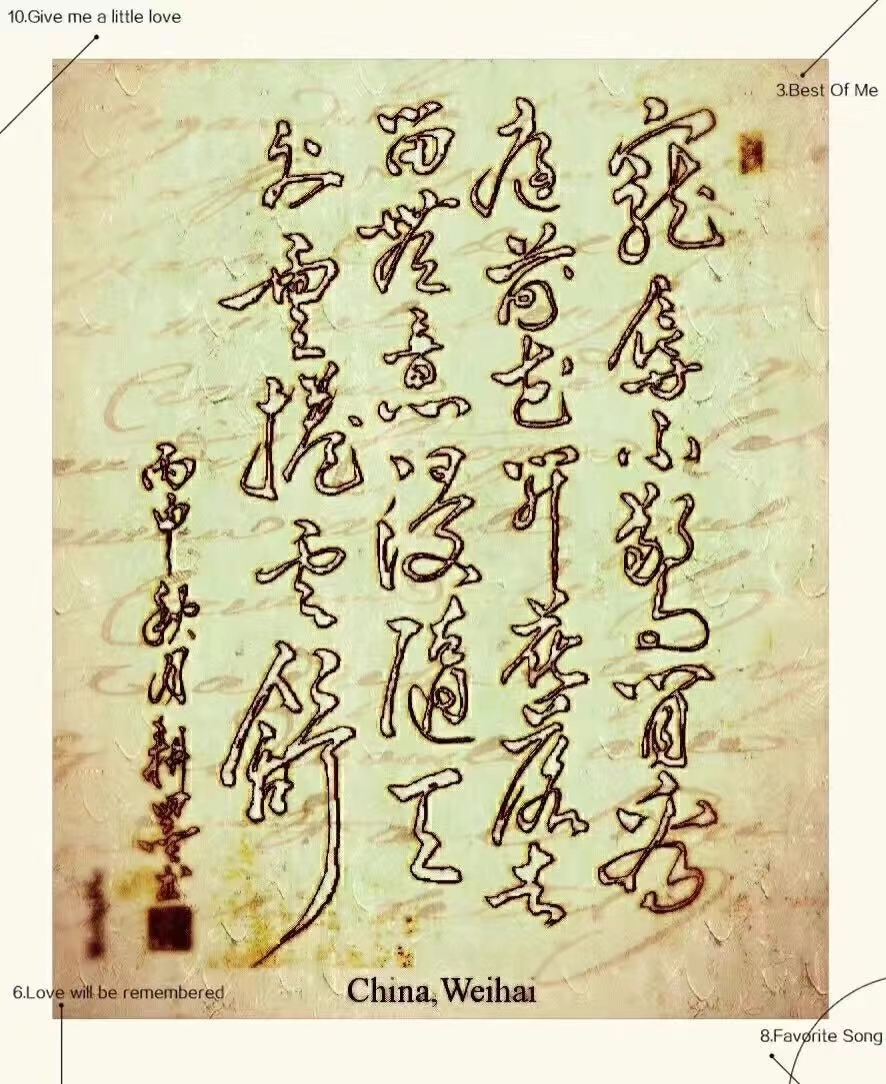 10.Give me a little love
3.Best Of Me
寵辱不驚閒看
庭前花開花落去
留無意漫隨天
外雲捲云舒
丙申秋月耕墨
China,Weihai
6.Love will be remembered
8.Favorite Song